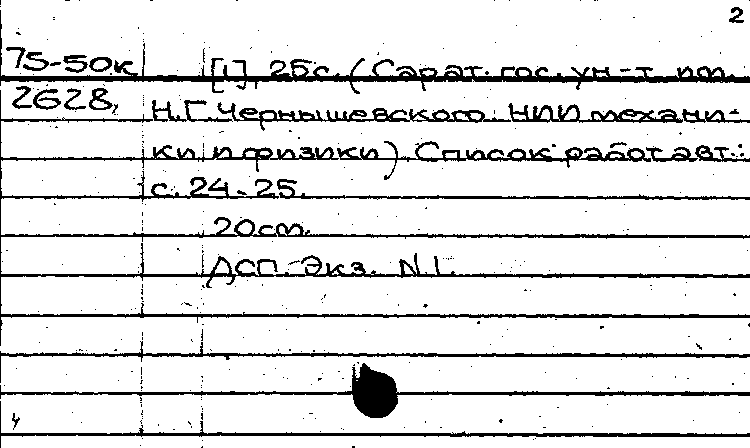 2
75-50к [1], 25с. (Сарат. гос. ун-т им.
2628, Н.Г.Чернышевского. НИИ механи-
ки и физики). Список работ авт.:
с. 24-25.
20см.
ДСП. Экз. N.1.